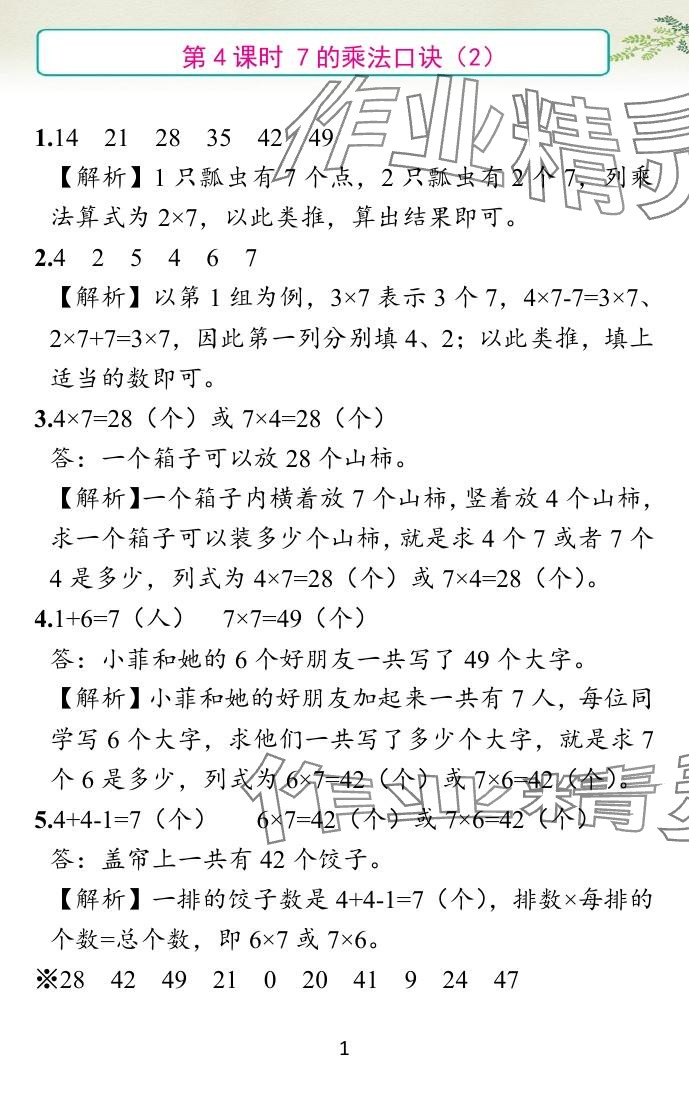 第 4 课时 7 的乘法口诀（2）
1.14 21 28 35 42 49
【解析】1 只瓢虫有 7 个点，2 只瓢虫有 2 个 7，列乘
法算式为 2×7，以此类推，算出结果即可。
2.4 2 5 4 6 7
【解析】以第 1 组为例，3×7 表示 3 个 7，4×7-7=3×7、
2×7+7=3×7，因此第一列分别填 4、2；以此类推，填上
适当的数即可。
3.4×7=28（个）或 7×4=28（个）
答：一个箱子可以放 28 个山柿。
【解析】一个箱子内横着放 7 个山柿，竖着放 4 个山柿，
求一个箱子可以装多少个山柿，就是求 4 个 7 或者 7 个
4 是多少，列式为 4×7=28（个）或 7×4=28（个）。
4.1+6=7（人） 7×7=49（个）
答：小菲和她的 6 个好朋友一共写了 49 个大字。
【解析】小菲和她的好朋友加起来一共有 7 人，每位同
学写 6 个大字，求他们一共写了多少个大字，就是求 7
个 6 是多少，列式为 6×7=42（个）或 7×6=42（个）。
5.4+4-1=7（个） 6×7=42（个）或 7×6=42（个）
答：盖帘上一共有 42 个饺子。
【解析】一排的饺子数是 4+4-1=7（个），排数×每排的
个数=总个数，即 6×7 或 7×6。
※28 42 49 21 0 20 41 9 24 47
1
作业精灵
作业精灵